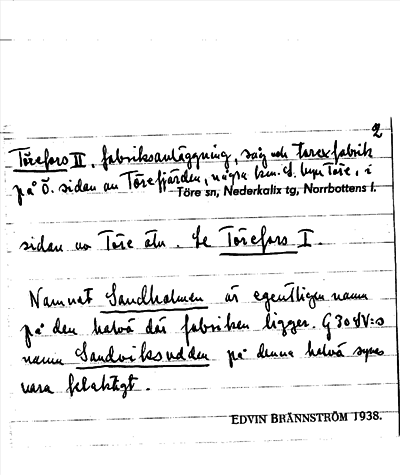 2
Törefors II. fabriksanläggning, såg och torexfabrik
på Ö. sidan av Törefjärden, några km. S. byn Töre, i
Töre sn, Nederkalix tg, Norrbottens l.
sidan av Töre älv. Se Törefors I.
Namnet Sandholmen är egentligen namn
på den halvö där fabriken ligger. G 30 SV:s
namn Sandviksudden på denna halvö synes
vara felaktigt.
EDVIN BRÄNNSTRÖM 1938.